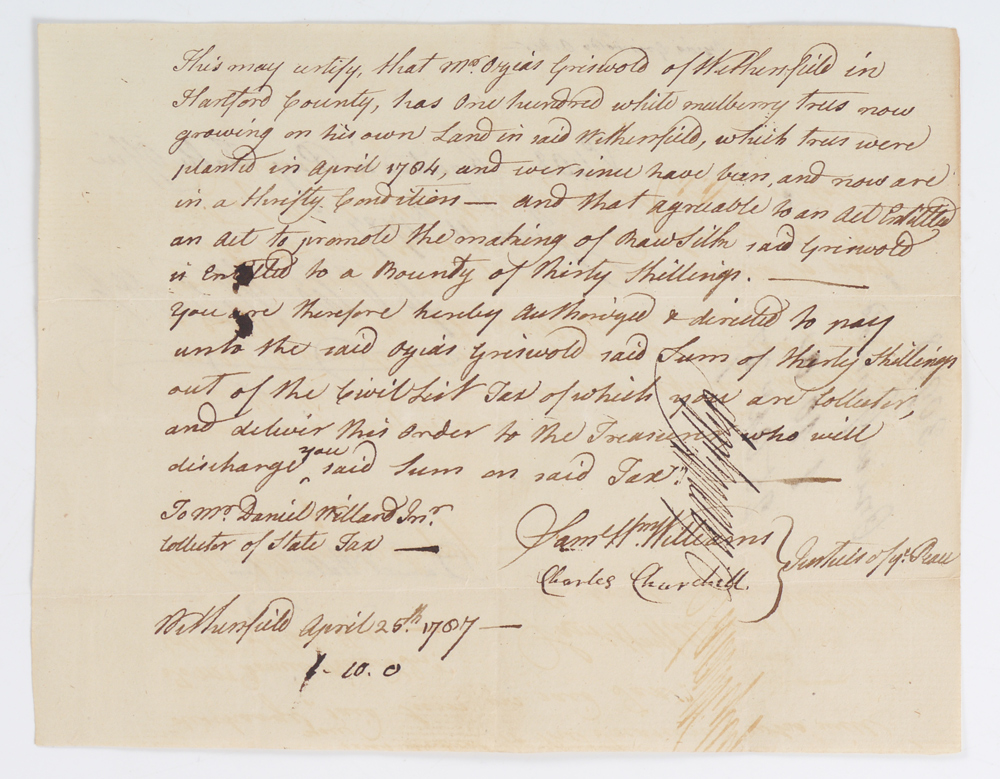 This may certify, that Mr. Ozias Griswold of Wethersfield in
Hartford County, has One hundred white mulberry trees now
growing on his own Land in said Wethersfield, which trees were
planted in April 1784, and ever since have been, and now are
in a thrifty Condition — and that agreable to an Act Entitled
an Act to promote the making of Raw Silk said Griswold
is Entitled to a Bounty of thirty shillings. —
You are therefore hereby Authorized & directed to pay
unto the said Ozias Griswold said Sum of thirty Shillings
out of the Civil List Tax of which you are Collector,
and deliver this Order to the Treasurer who will
discharge ^you said Sum on said Tax. —
To Mr. Daniel Willard Jnr.
Collector of State Tax —
Saml. Wm. Williams
Charles Churchill.
} Justices of ye. Peace
Wethersfield April 25th. 1787 —
1-10.0